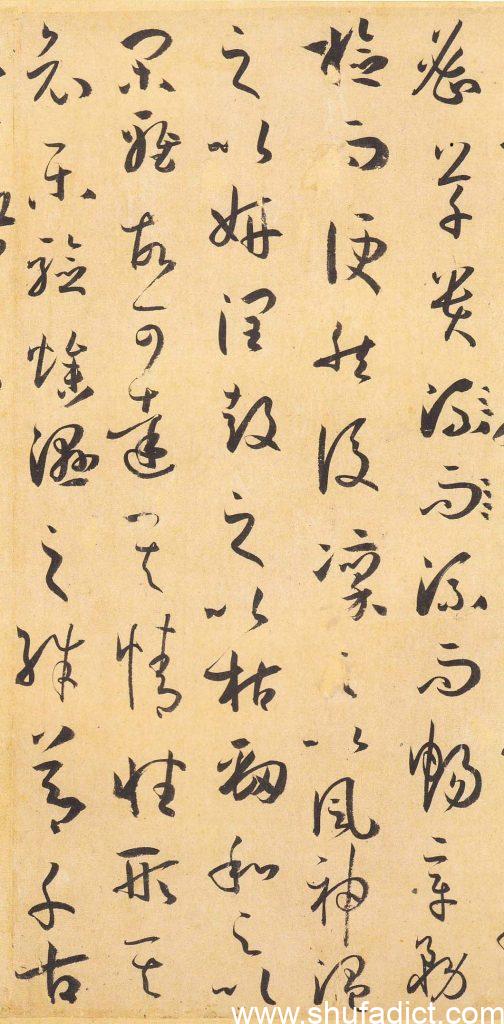 密草貴流而流而暢章務
檢而便然後凜之以風神溫
之以妍潤鼓之以枯勁和之以
閑雅故可達其情性形其
哀樂驗燥濕之殊節千古
www.shufadict.com